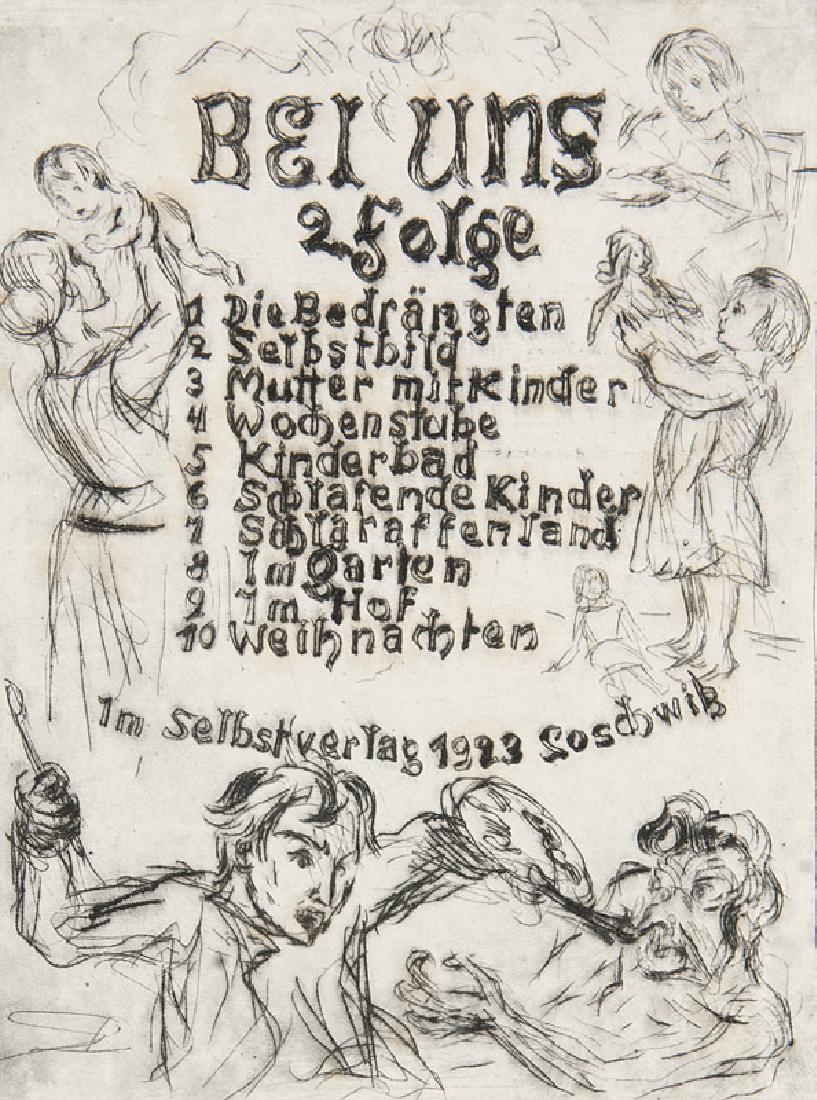 BEI UNS
2 Folge
1 Die Bedrängten
2 Selbstbild
3 Mutter mit Kinder
4 Wochenstube
5 Kinderbad
6 Schlafende Kinder
7 Schlaraffenland
8 Im Garten
9 Im Hof
10 Weihnachten
Im Selbstverlag 1923 Loschwitz